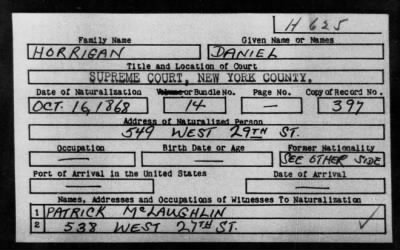 H 625
Family Name Given Name or Names
HORRIGAN DANIEL
Title and Location of Court
SUPREME COURT, NEW YORK COUNTY.
Date of Naturalization Volume or Bundle No. Page No. Copy of Record No.
OCT. 16, 1868 14 — 397
Address of Naturalized Person
549 WEST 29TH ST.
Occupation Birth Date or Age Former Nationality
— — SEE OTHER SIDE
Port of Arrival in the United States Date of Arrival
— —
Names, Addresses and Occupations of Witnesses To Naturalization
1 PATRICK McLAUGHLIN
2 538 WEST 27TH ST.